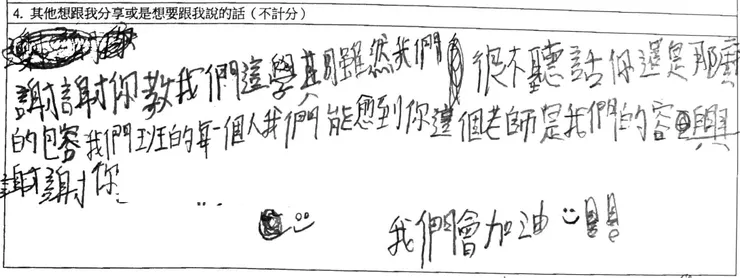 4. 其他想跟我分享或是想要跟我說的話（不計分）
謝謝你教我們這學其月雖然我們很不聽話你還是那麼
的包容我們班的每一個人我們能愈到你這個老師是我們的容興
謝謝你
我們會加油